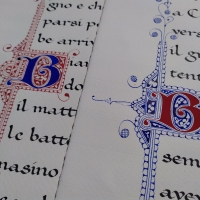 gno e ch
parsi p
be arriv
B
do
il matt
le batt
nasino
A C
versi
il gu
tent
B
sem
aven